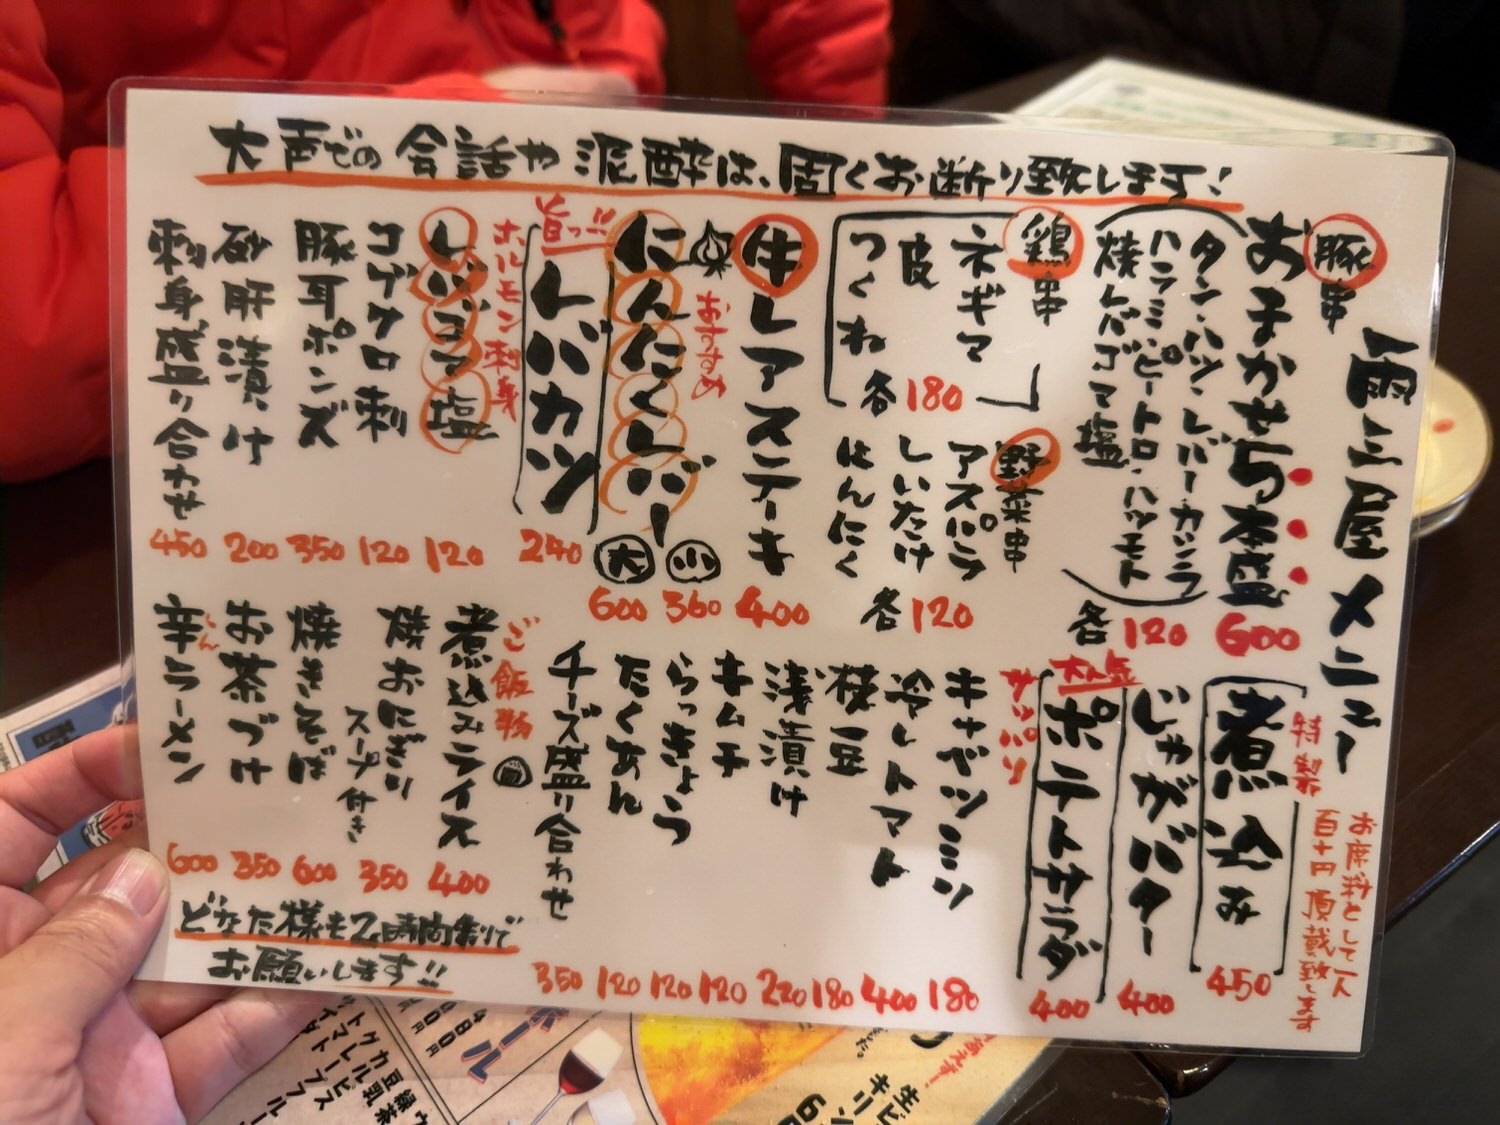 大声での会話や泥酔は、固くお断り致します!
雨三屋メニュー
お席料として一人
百十円頂戴致します
豚串
おまかせ5本盛 600
タン・ハツ・レバー・カシラ
ハラミ・ピートロ・ハツモト
焼レバゴマ塩
各120
鶏串
ネギマ
皮
つくね
各180
野菜串
アスパラ
しいたけ
にんにく
各120
牛レアステーキ 400
おすすめ
にんたくレバー
小 360
大 600
旨っ!!
レバカツ 240
ホルモン刺身
レバゴマ塩 120
コブクロ刺 120
豚耳ポンズ 350
砂肝漬け 200
刺身盛り合わせ 450
特製
煮込み 450
じゃがバター 400
大人気
ポテトサラダ 400
サッパリ
キャベツミソ 180
冷しトマト 400
枝豆 180
浅漬け 220
キムチ 120
らっきょう 120
たくあん 120
チーズ盛り合わせ 350
ご飯物
煮込みライス 400
焼おにぎり
スープ付き
350
焼きそば 600
お茶づけ 350
辛ラーメン 600
しん
どなた様も2時間制で
お願いします!!
生ビ
キリン
カルピス
グレープフルー
トマト
豆乳
緑茶
480円